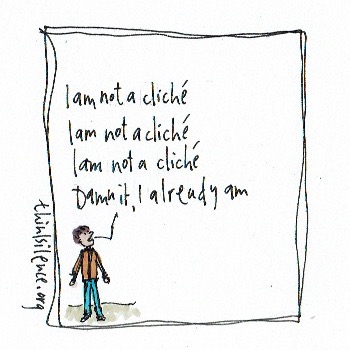 I am not a cliché
I am not a cliché
I am not a cliché
Damn it, I already am
thinksilence.org